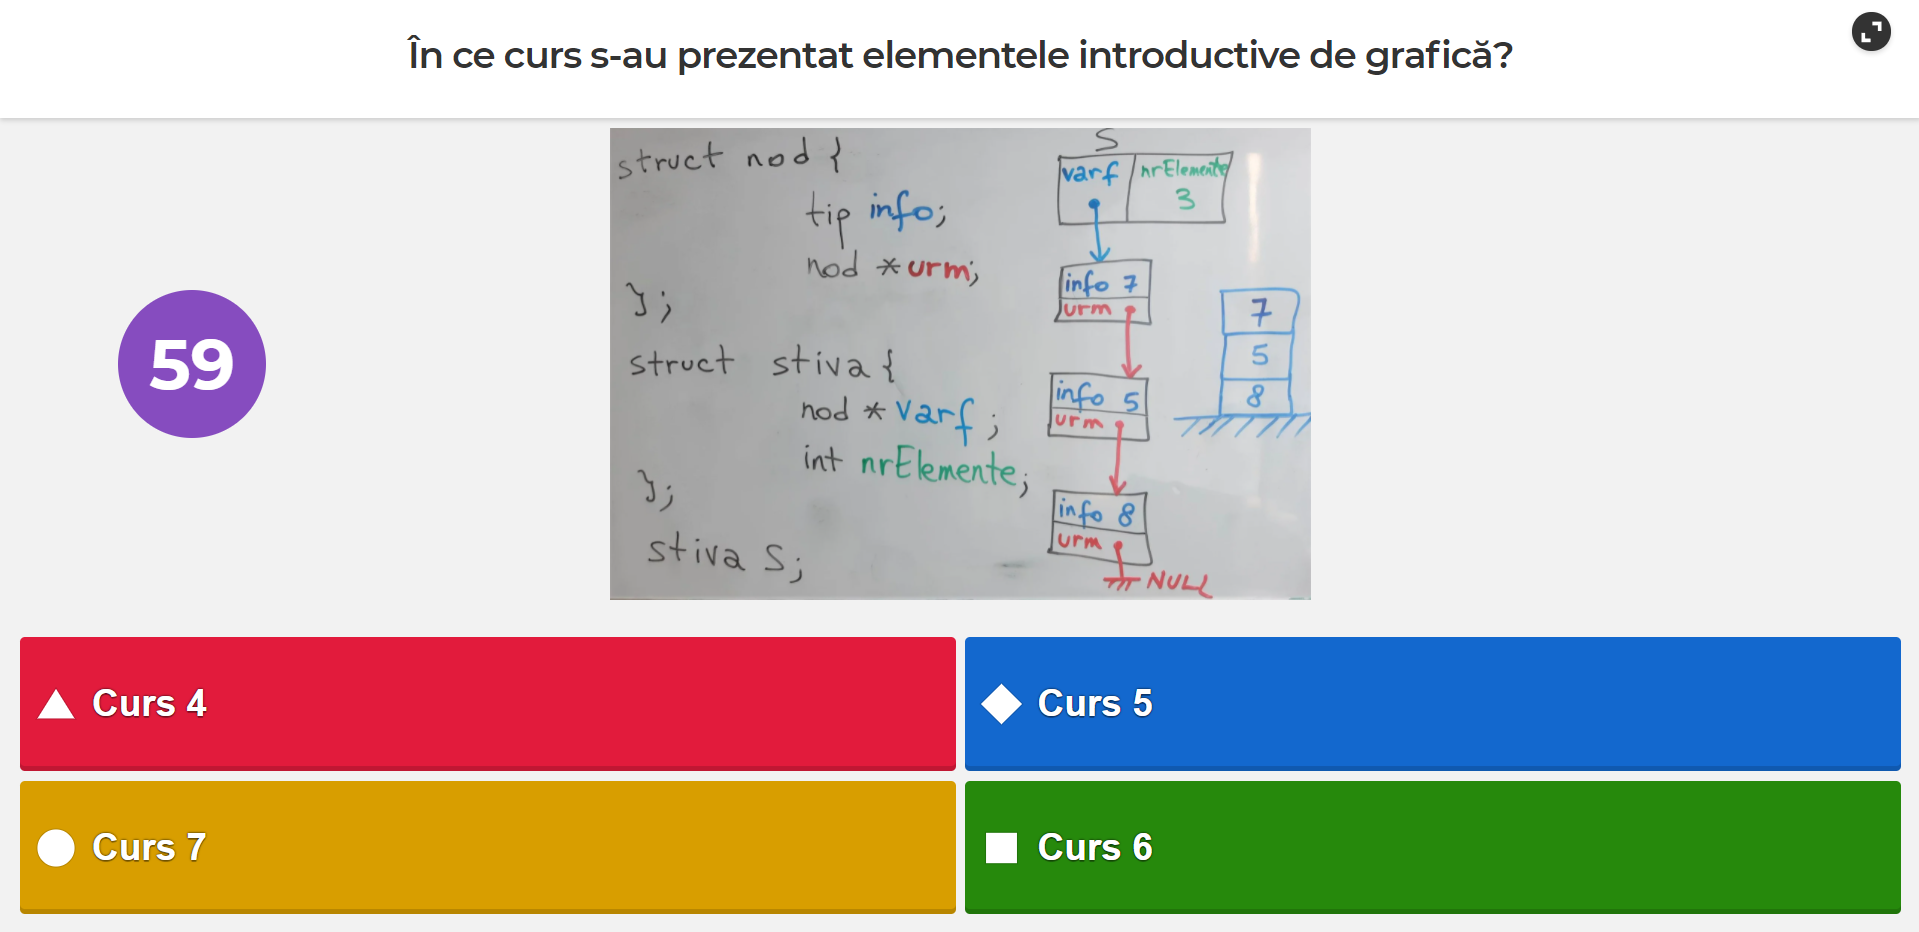 În ce curs s-au prezentat elementele introductive de grafică?
59
struct nod {
tip info;
nod * urm;
};
struct stiva {
nod * varf;
int nrElemente;
};
stiva S;
S
varf nrElemente
3
info 7
urm
info 5
urm
info 8
urm
NULL
7
5
8
Curs 4
Curs 5
Curs 7
Curs 6